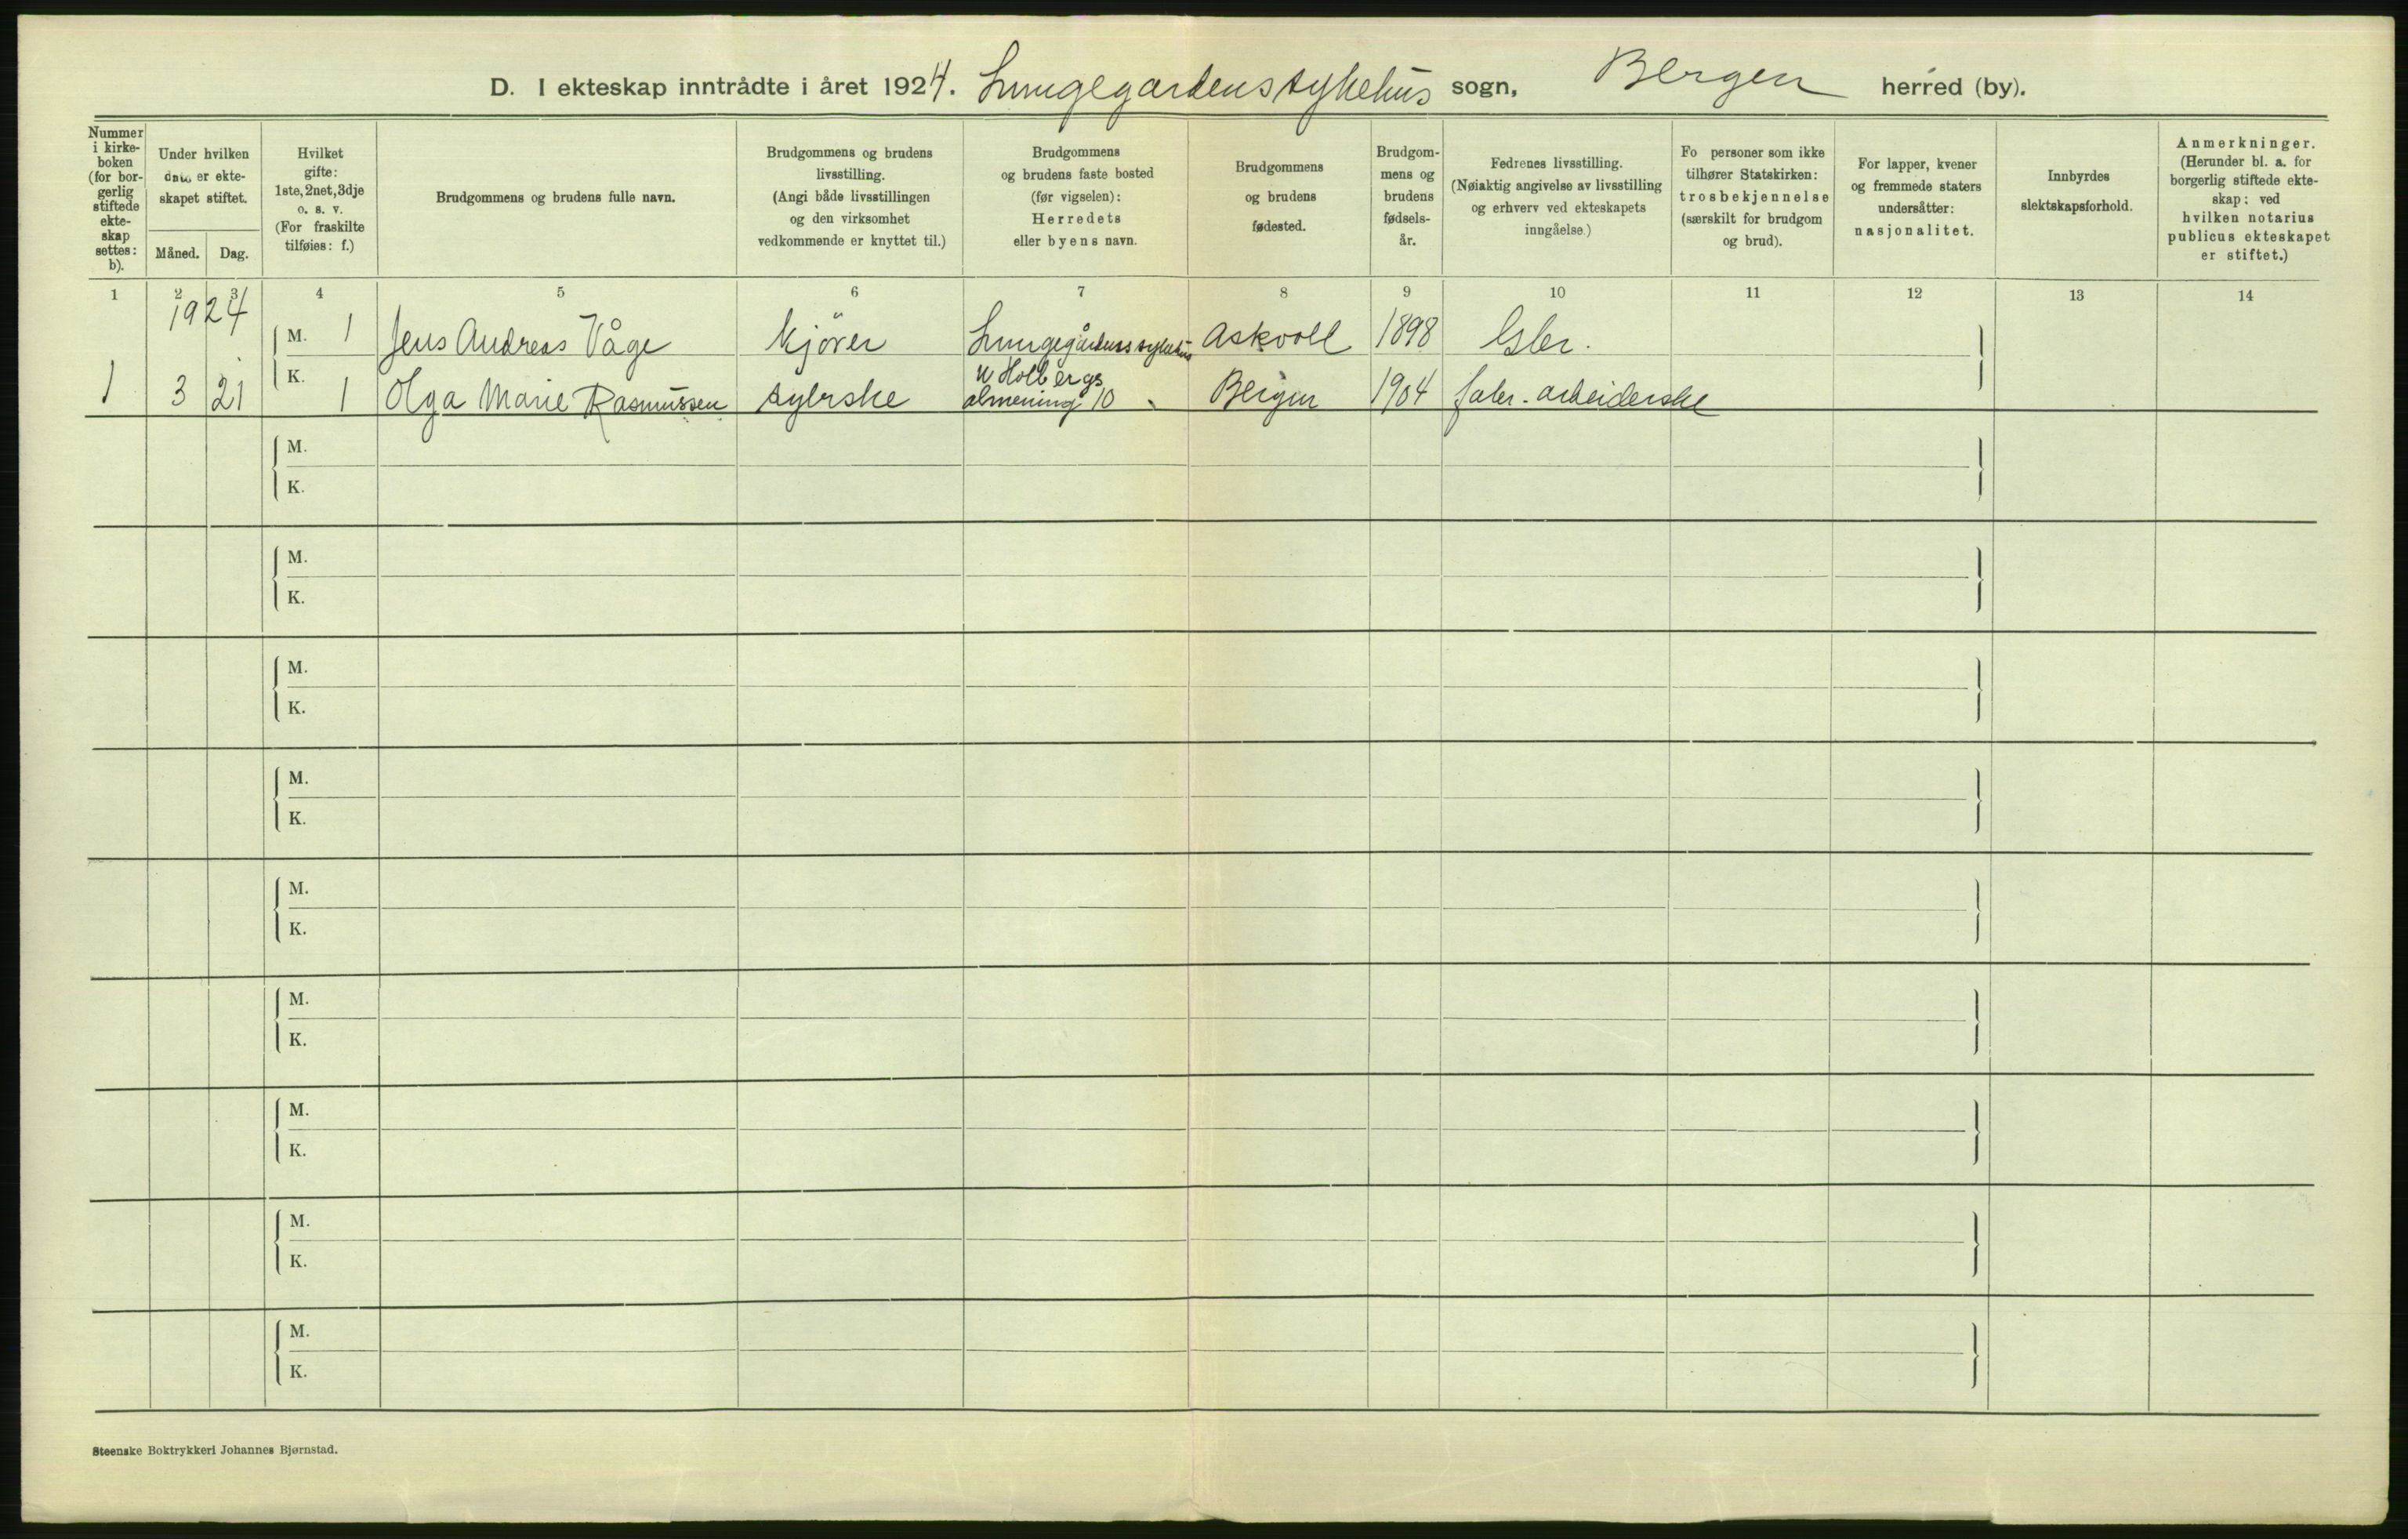 D. I ekteskap inntrådte i året 1924. Lungegardens sykehus sogn, Bergen herred (by).
Nummer
i kirke-
boken
(for bor-
gerlig
stiftede
ekte-
skap
settes:
b).
Under hvilken
dato er ekte-
skapet stiftet.
Måned. Dag.
Hvilket
gifte:
1ste, 2net, 3dje
o. s. v.
(For fraskilte
tilføies: f.)
Brudgommens og brudens fulle navn.
Brudgommens og brudens
livsstilling.
(Angi både livsstillingen
og den virksomhet
vedkommende er knyttet til.)
Brudgommens
og brudens faste bosted
(før vigselen):
Herredets
eller byens navn.
Brudgommens
og brudens
fødested.
Brudgom-
mens og
brudens
fødsels-
år.
Fedrenes livsstilling.
(Nøiaktig angivelse av livsstilling
og erhverv ved ekteskapets
inngåelse.)
Fo personer som ikke
tilhører Statskirken:
trosbekjennelse
(særskilt for brudgom
og brud).
For lapper, kvener
og fremmede staters
undersåtter:
nasjonalitet.
Innbyrdes
slektskapsforhold.
Anmerkninger.
(Herunder bl. a. for
borgerlig stiftede ekte-
skap: ved
hvilken notarius
publicus ekteskapet
er stiftet.)
1 2 3 4 5 6 7 8 9 10 11 12 13 14
1924
M. 1 Jens Andreas Våge kjører Lungegårdens sykehus Askvoll 1898 Gbr.
N Holbergs
1 3 21 K. 1 Olga Marie Rasmussen syerske almening 10 Bergen 1904 fabr. arbeiderske
M.
K.
M.
K.
M.
K.
M.
K.
M.
K.
M.
K.
M.
K.
M.
K.
M.
K.
Steenske Boktrykkeri Johannes Bjørnstad.